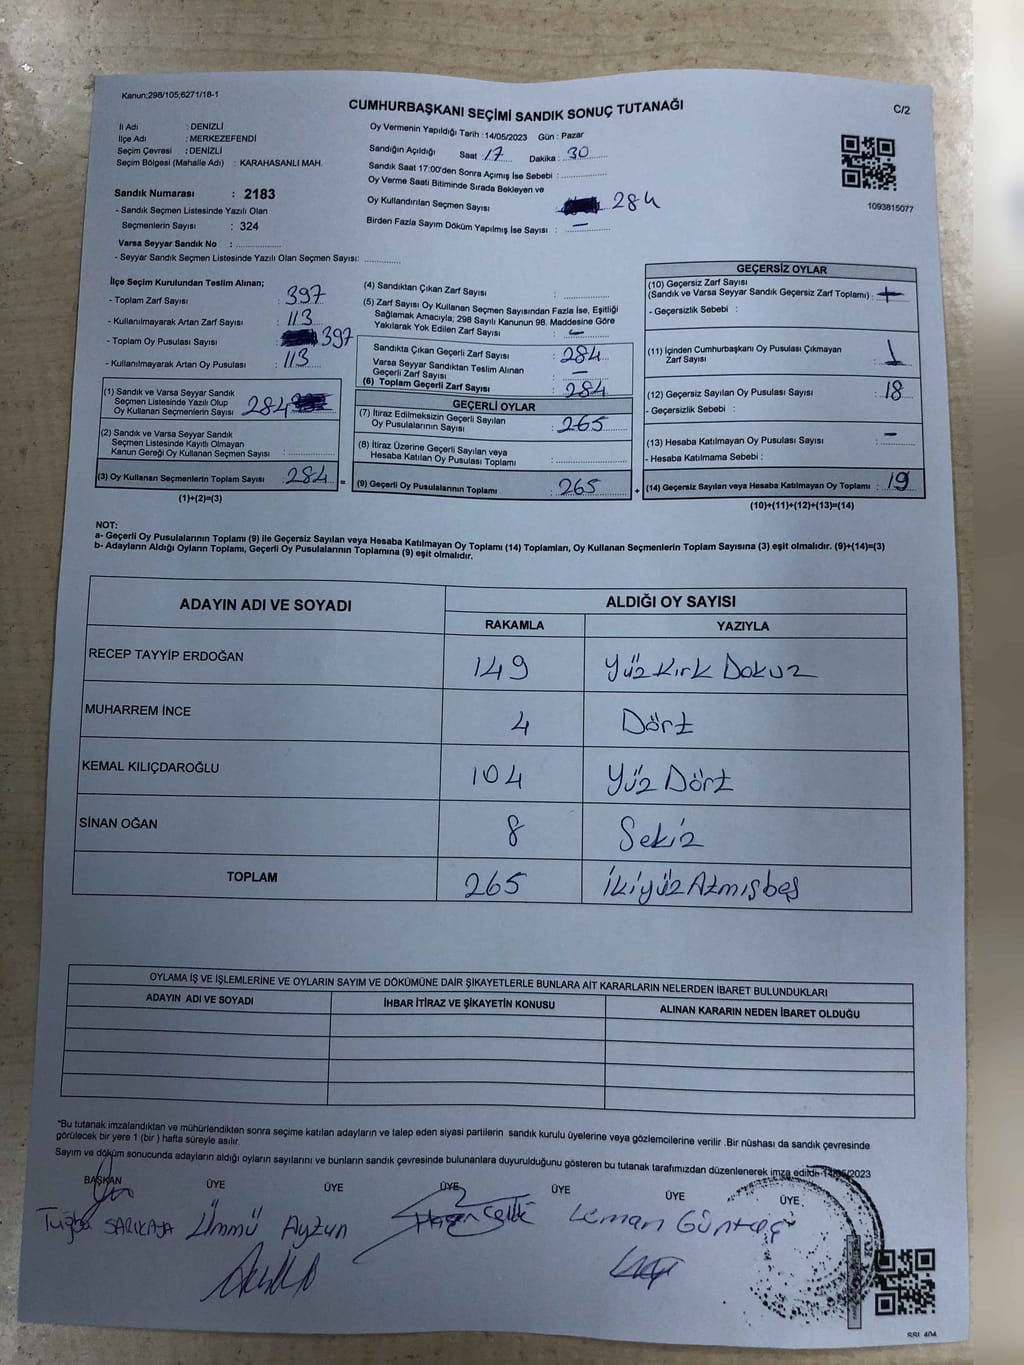 Kanun;298/105;6271/18-1
CUMHURBAŞKANI SEÇİMİ SANDIK SONUÇ TUTANAĞI
C/2
İl Adı : DENİZLİ
İlçe Adı : MERKEZEFENDİ
Seçim Çevresi : DENİZLİ
Seçim Bölgesi (Mahalle Adı) : KARAHASANLI MAH.
Sandık Numarası : 2183
- Sandık Seçmen Listesinde Yazılı Olan
Seçmenlerin Sayısı : 324
Varsa Seyyar Sandık No : ..............
- Seyyar Sandık Seçmen Listesinde Yazılı Olan Seçmen Sayısı: ............
Oy Vermenin Yapıldığı Tarih :14/05/2023 Gün : Pazar
Sandığın Açıldığı Saat : 17 Dakika : 30
Sandık Saat 17:00'den Sonra Açımış İse Sebebi : ...............
Oy Verme Saati Bitiminde Sırada Bekleyen ve
Oy Kullandırılan Seçmen Sayısı : 284
Birden Fazla Sayım Döküm Yapılmış İse Sayısı : —
1093815077
İlçe Seçim Kurulundan Teslim Alınan;
- Toplam Zarf Sayısı : 397
- Kullanılmayarak Artan Zarf Sayısı : 113
- Toplam Oy Pusulası Sayısı : 397
- Kullanılmayarak Artan Oy Pusulası : 113
(1) Sandık ve Varsa Seyyar Sandık
Seçmen Listesinde Yazılı Olup
Oy Kullanan Seçmenlerin Sayısı 284
(2) Sandık ve Varsa Seyyar Sandık
Seçmen Listesinde Kayıtlı Olmayan
Kanun Gereği Oy Kullanan Seçmen Sayısı : ............
(3) Oy Kullanan Seçmenlerin Toplam Sayısı : 284 =
(1)+(2)=(3)
(4) Sandıktan Çıkan Zarf Sayısı : ............
(5) Zarf Sayısı Oy Kullanan Seçmen Sayısından Fazla İse, Eşitliği
Sağlamak Amacıyla; 298 Sayılı Kanunun 98. Maddesine Göre
Yakılarak Yok Edilen Zarf Sayısı : —
Sandıkta Çıkan Geçerli Zarf Sayısı : 284
Varsa Seyyar Sandıktan Teslim Alınan
Geçerli Zarf Sayısı : —
(6) Toplam Geçerli Zarf Sayısı : 284
GEÇERLİ OYLAR
(7) İtiraz Edilmeksizin Geçerli Sayılan
Oy Pusulalarının Sayısı : 265
(8) İtiraz Üzerine Geçerli Sayılan veya
Hesaba Katılan Oy Pusulası Toplamı : ............
(9) Geçerli Oy Pusulalarının Toplamı : 265 +
GEÇERSİZ OYLAR
(10) Geçersiz Zarf Sayısı
(Sandık ve Varsa Seyyar Sandık Geçersiz Zarf Toplamı) :
- Geçersizlik Sebebi :
(11) İçinden Cumhurbaşkanı Oy Pusulası Çıkmayan
Zarf Sayısı : 1
(12) Geçersiz Sayılan Oy Pusulası Sayısı : 18
- Geçersizlik Sebebi :
(13) Hesaba Katılmayan Oy Pusulası Sayısı : —
- Hesaba Katılmama Sebebi :
(14) Geçersiz Sayılan veya Hesaba Katılmayan Oy Toplamı : 19
(10)+(11)+(12)+(13)=(14)
NOT:
a- Geçerli Oy Pusulalarının Toplamı (9) ile Geçersiz Sayılan veya Hesaba Katılmayan Oy Toplamı (14) Toplamları, Oy Kullanan Seçmenlerin Toplam Sayısına (3) eşit olmalıdır. (9)+(14)=(3)
b- Adayların Aldığı Oyların Toplamı, Geçerli Oy Pusulalarının Toplamına (9) eşit olmalıdır.
ADAYIN ADI VE SOYADI
ALDIĞI OY SAYISI
RAKAMLA YAZIYLA
RECEP TAYYİP ERDOĞAN 149 Yüz Kırk Dokuz
MUHARREM İNCE 4 Dört
KEMAL KILIÇDAROĞLU 104 Yüz Dört
SİNAN OĞAN 8 Sekiz
TOPLAM 265 İkiyüz Atmışbeş
OYLAMA İŞ VE İŞLEMLERİNE VE OYLARIN SAYIM VE DÖKÜMÜNE DAİR ŞİKAYETLERLE BUNLARA AİT KARARLARIN NELERDEN İBARET BULUNDUKLARI
ADAYIN ADI VE SOYADI İHBAR İTİRAZ VE ŞİKAYETİN KONUSU ALINAN KARARIN NEDEN İBARET OLDUĞU
*Bu tutanak imzalandıktan ve mühürlendikten sonra seçime katılan adayların ve talep eden siyasi partilerin sandık kurulu üyelerine veya gözlemcilerine verilir .Bir nüshası da sandık çevresinde
görülecek bir yere 1 (bir ) hafta süreyle asılır.
Sayım ve döküm sonucunda adayların aldığı oyların sayılarını ve bunların sandık çevresinde bulunanlara duyurulduğunu gösteren bu tutanak tarafımızdan düzenlenerek imza edildi. 14/05/2023
BAŞKAN ÜYE ÜYE ÜYE ÜYE ÜYE ÜYE
Tuğba SARIKAYA Ümmü Ayzun Leman Güntaç